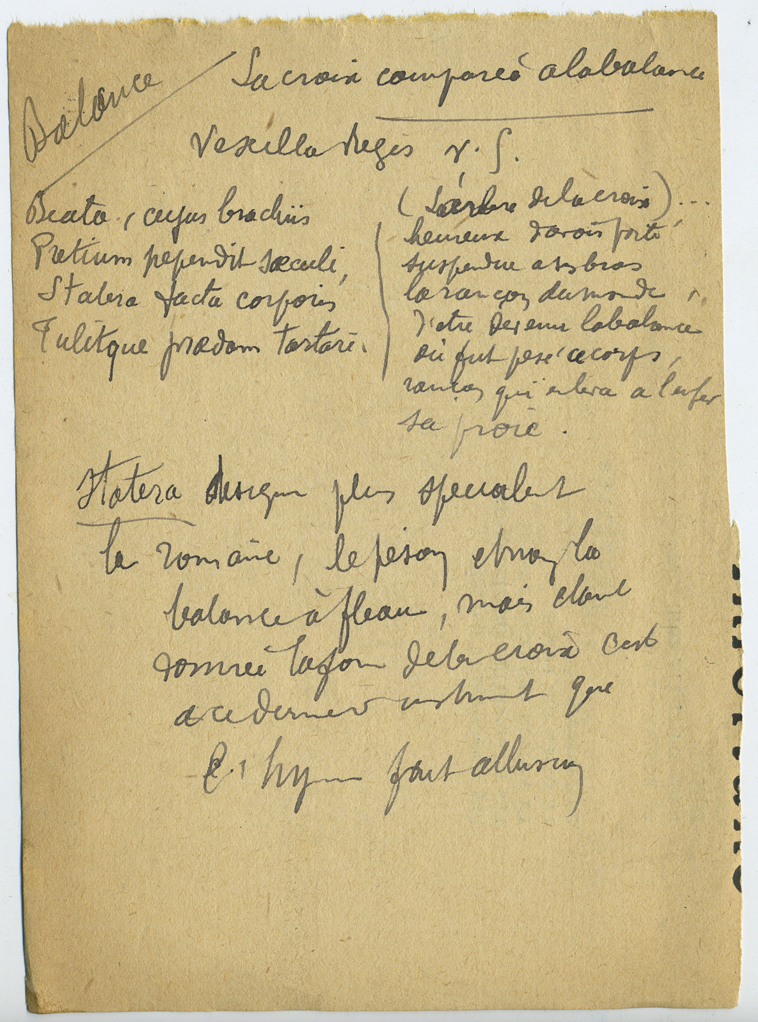 Balance
La croix comparée à la balance
Vexilla Regis v. 5.
Beata, cujus brachiis
Pretium pependit sæculi,
Statera facta corporis
Tulitque prædam tartari.
(L'arbre de la croix) ...
heureux d'avoir porté
suspendue a ses bras
la rançon du monde,
d'etre devenu la balance
où fut pesé ce corps,
rançon qui enleva a l'enfer
sa proie.
Statera designe plus specialent
la romaine, le peson et non la
balance à fleau, mais etant
donnée la forme de la croix c'est
a ce dernier instrument que
l'hymne fait allusion